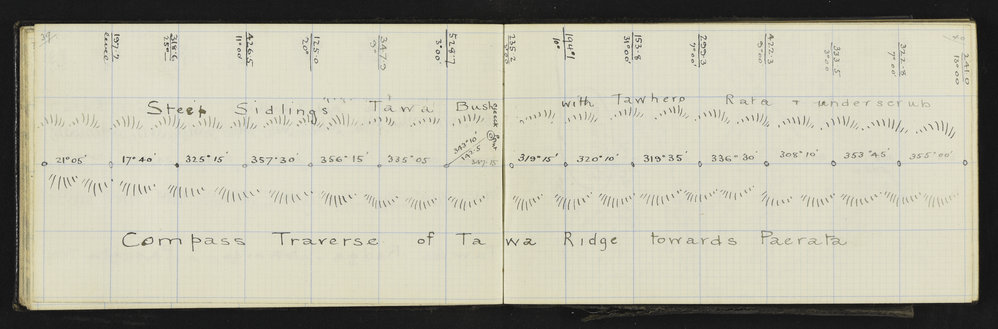 197.7
318.6
25°
426.5
11°00'
125.0
20°
347.0
528.7
3°00'
235.2
194.1
10°
153.8
31°00'
299.3
7°00'
422.3
9°00'
333.5
3°00'
322.8
7°00'
241.0
15°00
Steep Sidlings Tawa Bush with Tawhero Rata + underscrub
21°05' 17°40' 325°15' 357°30' 356°15' 335°05 343°10' 319°15' 320°10' 319°35' 336°30' 308°10' 353°45' 355°00'
147.5
347.15
Compass Traverse of Tawa Ridge towards Paerata